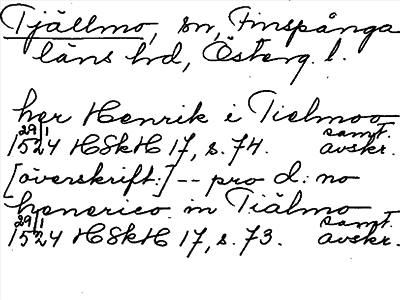 Tjällmo, sn, Finspånga
läns hd, Österg. l.
her Henrik i Tielmoo
29/1 1524 HSkH 17, s. 74. samt. avskr.
[överskrift:] -- pro d: no
henerico in Tiälmo
29/1 1524 HSkH 17, s. 73. samt. avskr.